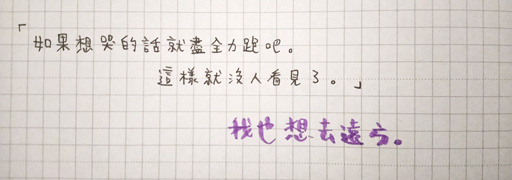 「如果想哭的話就盡全力跑吧。
這樣就沒人看見了。」
我也想去遠方。